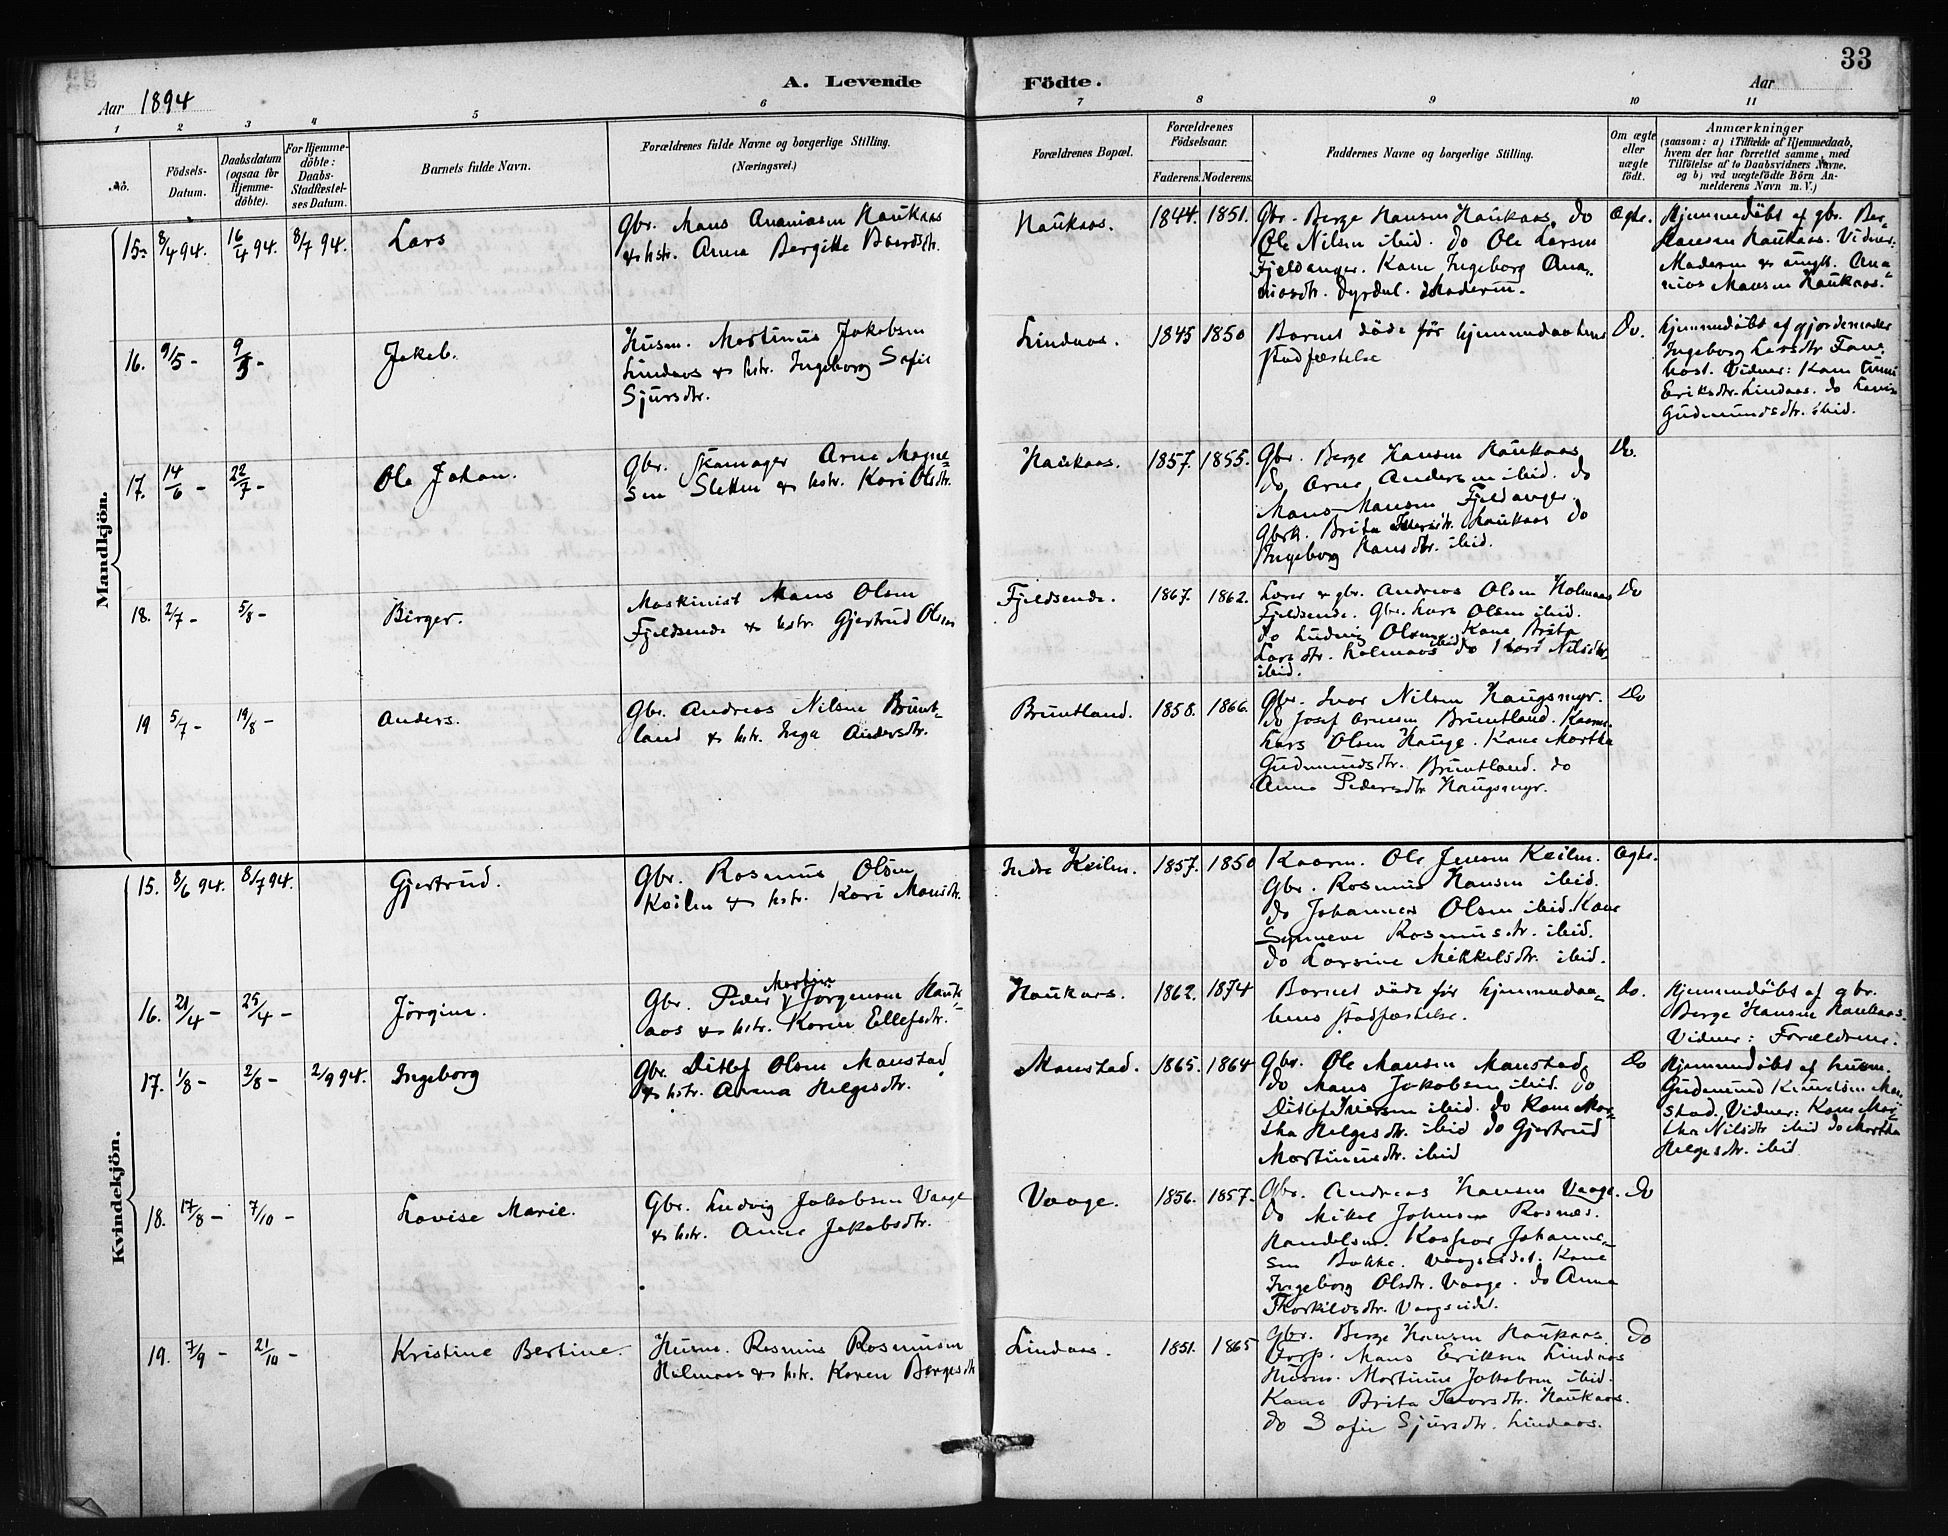 33
A. Levende Födte.
Aar 1894
Aar
1 2 3 4 5 6 7 8 9 10 11
No.
Födsels-
Datum.
Daabsdatum
(ogsaa for
Hjemme-
döbte).
For Hjemme-
döbte:
Daabs-
Stadfæstel-
ses Datum.
Barnets fulde Navn.
Forældrenes fulde Navne og borgerlige Stilling.
(Næringsvei.)
Forældrenes Bopæl.
Forældrenes
Födselsaar.
Faderens. Moderens.
Faddernes Navne og borgerlige Stilling.
Om ægte
eller
uægte
födt.
Anmærkninger
(saasom: a) i Tilfælde af Hjemmedaab,
hvem der har forrettet samme, med
Tilföielse af to Daabsvidners Navne.
og b) ved uægtefödte Börn An-
melderens Navn m. V.)
Mandkjön.
15. 8/4 94. 16/4 94. 8/7 94. Lars
Gbr. Mons Ananiasen Haukaas
& hstr. Anna Bergitte Baardsdtr.
Haukaas. 1844. 1851.
Gbr. Berge Hansen Haukaas. do
Ole Nilsen ibid. do Ole Larsen
Fjeldanger. Kone Ingeborg Ana-
niasdtr. Dyrdal. Moderen.
Ægte.
Hjemmedøbt af gbr. Ber-
Hansen Haukaas. Vidner:
Moderen & ungk. Ana-
nias Monsen Haukaas.
16. 9/5 - 9/5 - Jakob.
Husm. Martinus Jakobsen
Lindaas & hstr. Ingeborg Sofie
Sjursdtr.
Lindaas. 1845 1850
Barnet døde før hjemmedaabens
stadfæstelse
Do.
Hjemmedøbt af gjordemoder
Ingeborg Larsdtr Fane-
host. Vidner: Kone
Eriksdtr. Lindaas. do
Gudmundsdtr. ibid.
17. 14/6 - 22/7 - Ole Johan.
Gbr. Skomager Arne Magne-
sen Sletten & hstr. Kari Olsdtr.
Haukaas. 1857. 1855.
Gbr. Berge Hansen Haukaas
do Arne Andersen ibid. do
Mons Monsen Fjeldanger.
Gbrk. Brita Iversdtr. Haukaas do
Ingeborg Hansdtr. ibid.
Do.
18. 2/7 - 5/8 - Birger.
Maskinist Mons Olsen
Fjeldsende & hstr. Gjertrud Olsen
Fjeldsende. 1867. 1862.
Lærer & gbr. Andreas Olsen Holmaas
Fjeldsende. Gbr. Lars Olsen ibid.
do Ludvig Olsen ibid Kone Brita
Larsdtr. Holmaas do Kari Nilsdtr
ibid.
Do
19 5/7 - 19/8 - Anders.
Gbr. Andreas Nilsen Brunt-
land & hstr. Inga Andersdtr.
Bruntland. 1858. 1866.
Gbr. Ivar Nilsen Haugsmyr.
do Josef Arnesen Bruntland. Kaarm.
Lars Olsen Hauge. Kone Martha
Gudmundsdtr. Bruntland. do
Anna Pedersdtr Haugsmyr.
Do
Kvindekjön.
15. 8/6 94. 8/7 94. Gjertrud.
Gbr. Rasmus Olsen
Keilen & hstr. Kari Monsdtr.
Indre Keilen. 1857. 1850
Kaarm. Ole Jensen Keilen.
Gbr. Rasmus Hansen ibid.
do Johannes Olsen ibid. Kone
Synneve Rasmusdtr. ibid.
do Larsine Mikkelsdtr. ibid.
Ægte.
16. 21/4 - 25/4 - Jörgine.
Gbr. Peder Martin Jørgensen Hauk-
aas & hstr. Karen Ellefsdtr.
Haukaas. 1862. 1874
Barnet døde før hjemmedaa-
bens stadfæstelse.
do.
Hjemmedøbt af gbr.
Berge Hansen Haukaas.
Vidner: Forældrene.
17. 1/8 - 2/8 - 2/9 94. Ingeborg
Gbr. Ditlef Olsen Monstad
& hstr. Anna Helgesdtr.
Monstad. 1865. 1864
Gbr. Ole Monsen Monstad
do Mons Jakobsen ibid. do
Ditlef Iversen ibid. do Kone Mar-
tha Helgesdtr. ibid do Gjertrud
Martinusdtr. ibid
Do
Hjemmedøbt af husm.
Gudmund Knudsen Mon-
stad. Vidner: Kone Mar-
tha Nilsdtr ibid do Martha
Helgesdtr. ibid
18. 17/8 - 7/10 - Lovise Marie.
Gbr. Ludvig Jakobsen Vaage
& hstr. Anne Jakobsdtr.
Vaage. 1856. 1857.
Gbr. Andreas Hansen Vaage.
do Mikal Johnsen Rosnes.
Handelsm. Kaspar Johanne-
sen Bakke. Vaagseidet. Kone
Ingeborg Olsdtr. Vaage. do Anna
Thorkildsdtr. Vaagseidet.
Do
19. 7/9 - 21/10 - Kristine Bertine.
Husm. Rasmus Rasmusen
Holmaas & hstr. Karen Bergesdtr
Lindaas. 1851. 1865
Gbr. Berge Hansen Haukaas.
Forp. Mons Eriksen Lindaas
Husm. Martinus Jakobsen ibid.
Kone Brita Ivarsdtr. Haukaas.
do Sofie Sjursdtr. Lindaas.
Do